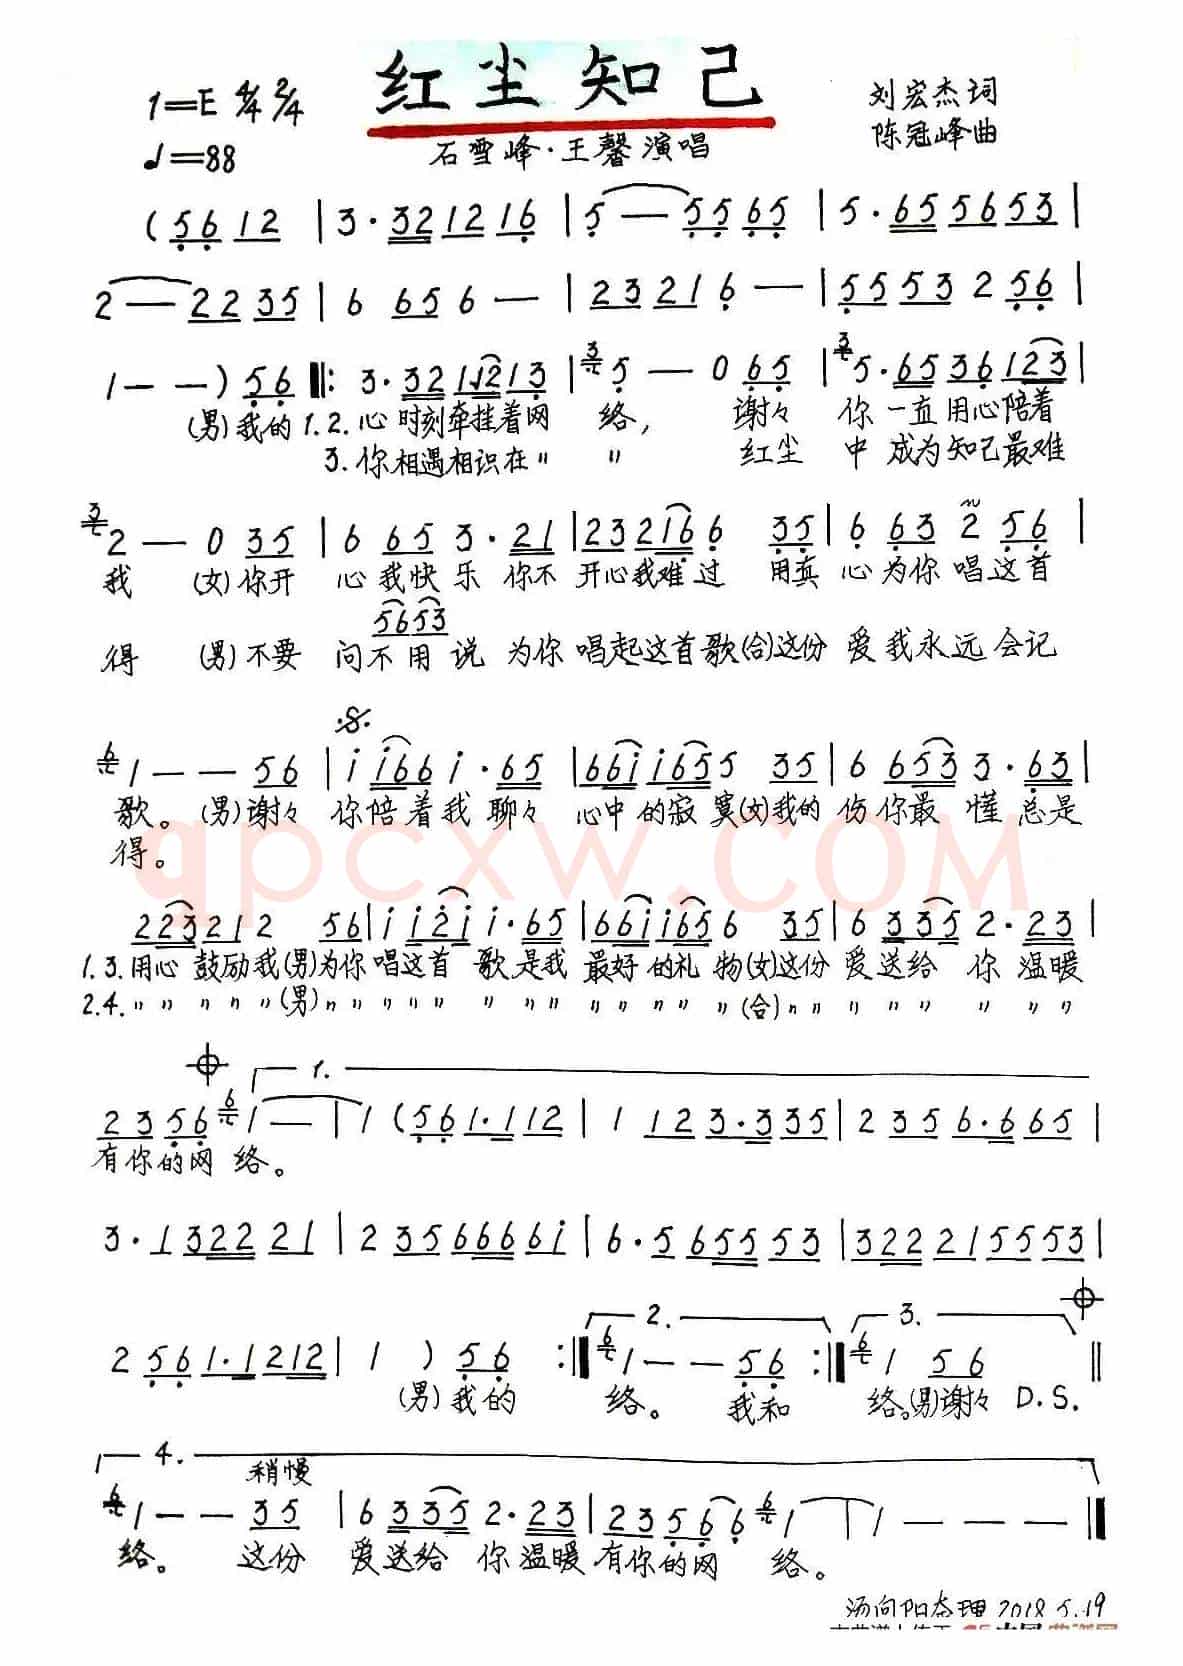 红尘知己
1=E 4/4 2/4
刘宏杰词
♩=88
石雪峰·王馨演唱
陈冠峰曲
(5̣6̣ 12 | 3·32 1216̣ | 5̣—5̣5̣6̣5̣ | 5·65 5653 |
2—2235 | 6 656— | 23216̣— | 5̣553 2 5̣6̣ |
1——)5̣6̣ ‖: 3·32 1213̣ | 5̣—0 6̣5̣ | 5̣·6̣5̣ 3̣6̣123 |
(男)我的1.2.心时刻牵挂着网 络， 谢々 你一直用心陪着
3.你相遇相识在〃 〃 红尘 中成为知己最难
2—0 35 | 6 65 3·21 | 23216̣6̣ 3̣5̣ | 6̣ 6̣3̣ 2 5̣6̣ |
我 (女)你开 心我快乐 你不 开心我难过 用真 心为你唱这首
5653
得 (男)不要 问不用说 为你 唱起这首歌(合)这份 爱我永远会记
1——56 | i i66i·65 | 66i i655 35 | 6 653 3·6̣3 |
歌。 (男)谢々 你陪着我聊々 心中的寂寞(女)我的 伤你最懂总是
得。
qpcxw.COM
223212 56 | i i2i i·65 | 66i i656 35 | 6 335 2·23 |
1.3.用心鼓励我(男)为你唱这首歌是我 最好的礼物(女)这份爱送给你温暖
2.4.〃〃〃〃〃(男)〃〃〃〃〃〃〃〃〃〃〃〃〃(合)〃〃〃〃〃〃〃〃
1.
235̣6̣ 1—|1 (5̣6̣1·112 | 1 123·335 | 235 6·665 |
有你的网 络。
3·1322 21 | 2 35666 6i | 6·565555 3 | 3222 15553 |
2. 3.
2 5̣6̣1·1212 | 1 ) 5̣6̣ :‖ 1——5̣6̣ :‖ 1 56 ‖
(男)我的 络。 我和 络。(男)谢々 D.S.
4.
稍慢
1——35 | 6 335 2·23 | 235̣6̣6̣ 1—|1——— ‖
络。 这份 爱送给 你温暖 有你的网 络。
汤向阳整理 2018.5.19